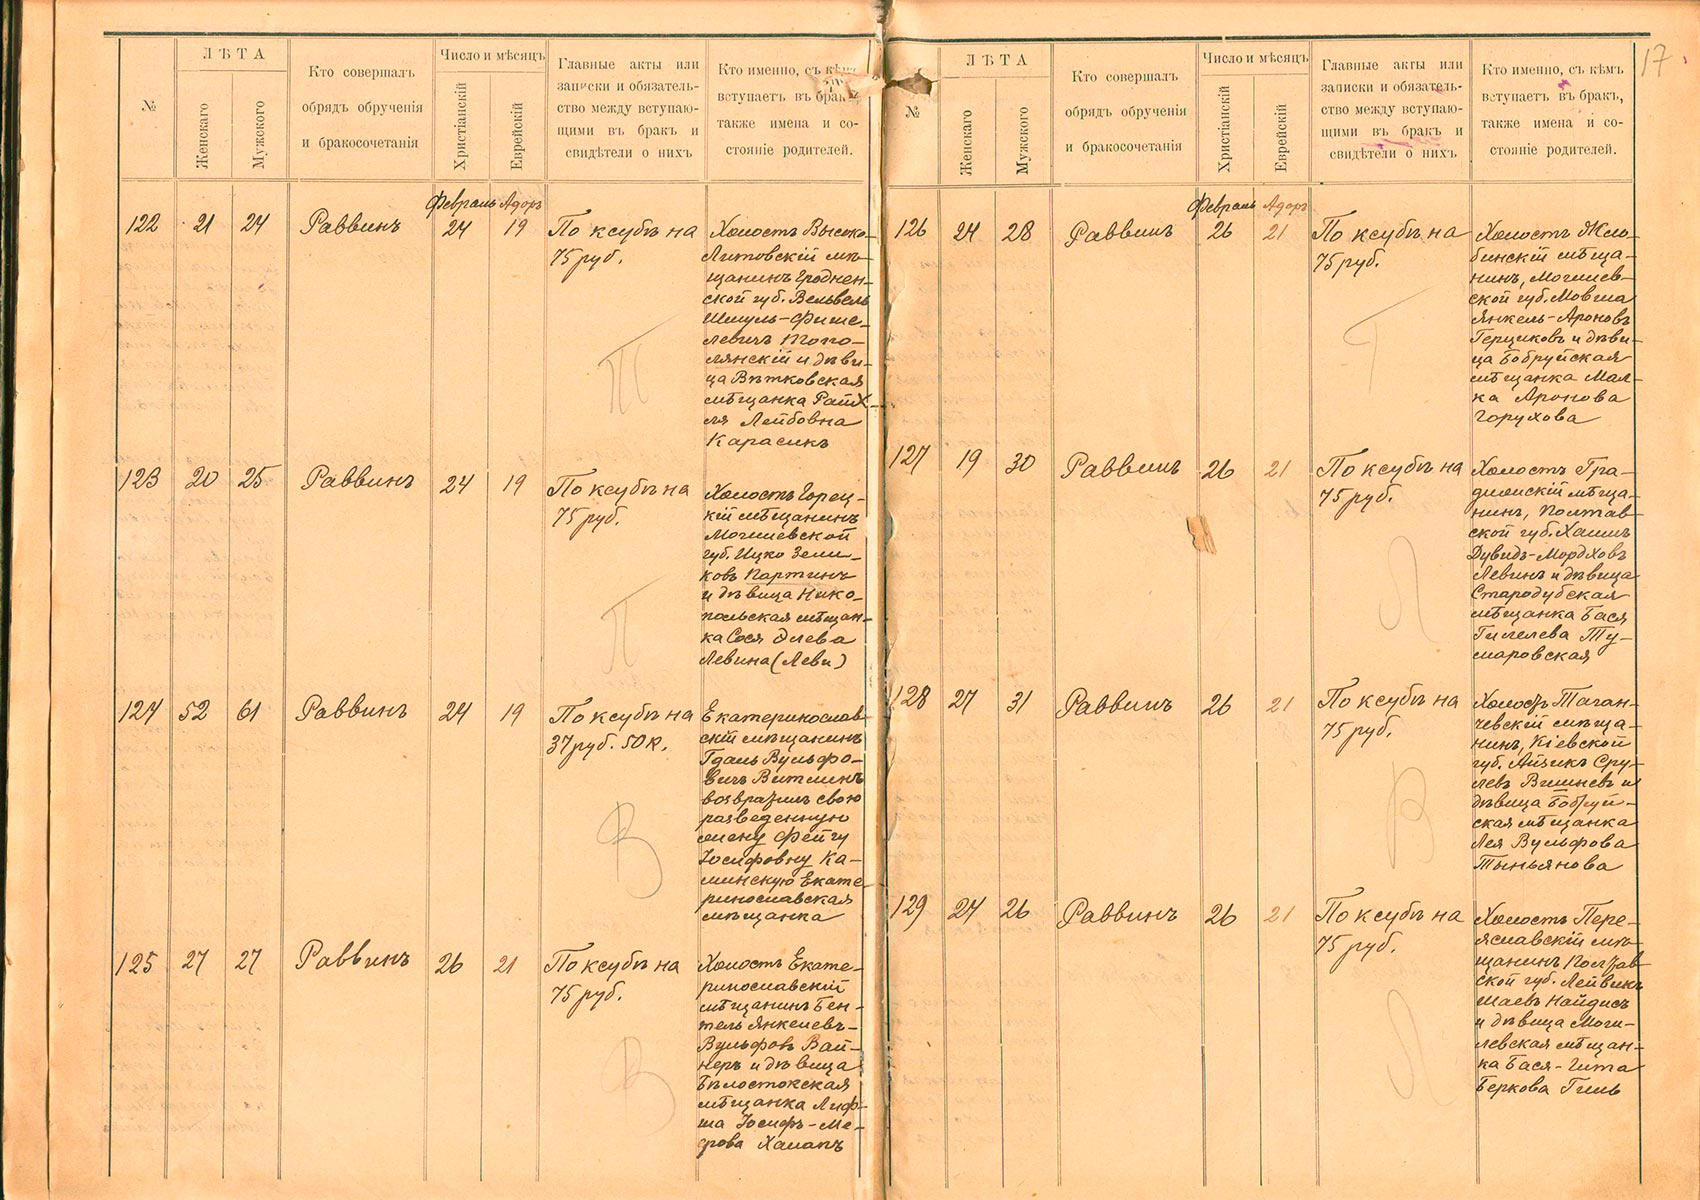 17
№
ЛѢТА
Женскаго
Мужского
Кто совершалъ
обрядъ обрученія
и бракосочетанія
Число и мѣсяцъ
Христіанскій
Еврейскій
Главные акты или
записки и обязатель-
ство между вступаю-
щими въ бракъ и
свидѣтели о нихъ
Кто именно, съ кѣмъ
вступаетъ въ бракъ,
также имена и со-
стояніе родителей.
Февраль Адоръ
122 21 24 Раввинъ 24 19
По ксубѣ на
75 руб.
Холостъ Высоко-
Литовскій мѣ-
щанинъ Гроднен-
ской губ. Вельвель
Шмуль-Фише-
левичъ Топо-
лянскій и дѣви-
ца Вѣтковская
мѣщанка Рай
ля Лейбовна
Карасикъ
Т
123 20 25 Раввинъ 24 19
По ксубѣ на
75 руб.
Холостъ Горец-
кій мѣщанинъ
Могилевской
губ. Ицко Зели-
ковъ Партинъ
и дѣвица Нико-
польская мѣщан-
ка Сося Элева
Левина (Леви)
П
124 52 61 Раввинъ 24 19
По ксубѣ на
37 руб. 50 к.
Екатеринослав-
скій мѣщанинъ
Гдаль Вульфо-
вичъ Витлинъ
возвратилъ свою
разведенную
жену Фейгу
Іосифовну Ка-
минскую Екате-
ринославская
мѣщанка
В
125 27 27 Раввинъ 26 21
По ксубѣ на
75 руб.
Холостъ Екате-
ринославскій
мѣщанинъ Бен-
тель Янкелевъ-
Вульфовъ Вай-
неръ и дѣвица
Бѣлостокская
мѣщанка Лиф-
ша Іосифъ-Ме-
ерова Халапъ
В
№
ЛѢТА
Женскаго
Мужского
Кто совершалъ
обрядъ обрученія
и бракосочетанія
Число и мѣсяцъ
Христіанскій
Еврейскій
Главные акты или
записки и обязатель-
ство между вступаю-
щими въ бракъ и
свидѣтели о нихъ
Кто именно, съ кѣмъ
вступаетъ въ бракъ,
также имена и со-
стояніе родителей.
Февраль Адоръ
126 24 28 Раввинъ 26 21
По ксубѣ на
75 руб.
Холостъ Жло-
бинскій мѣща-
нинъ, Могилев-
ской губ. Мовша
Янкель-Ароновъ
Герциковъ и дѣви-
ца Бобруйская
мѣщанка Мал-
ка Аронова
Горухова
Г
127 19 30 Раввинъ 26 21
По ксубѣ на
75 руб.
Холостъ Гра-
дижскій мѣща-
нинъ, Полтав-
ской губ. Хаимъ
Дувидъ-Мордховъ
Левинъ и дѣвица
Стародубская
мѣщанка Бася
Гилелева Ту-
маровская
Л
128 27 31 Раввинъ 26 21
По ксубѣ на
75 руб.
Холостъ Таган-
чевскій мѣща-
нинъ, Кіевской
губ. Айзикъ Сру-
левъ Вишневъ и
дѣвица Бобруй-
ская мѣщанка
Лея Вульфова
Тыньянова
В
129 24 26 Раввинъ 26 21
По ксубѣ на
75 руб.
Холостъ Пере-
яславскій мѣ-
щанинъ Полтав-
ской губ. Лейвикъ
Шаевъ Найдисъ
и дѣвица Моги-
левская мѣщан-
ка Бася-Гита
Беркова Гинь
Л